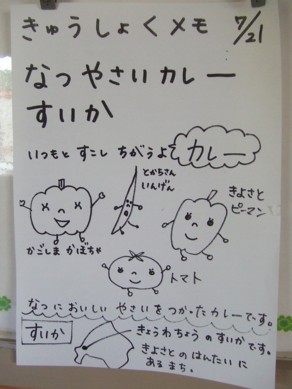 きゅうしょくメモ 7/21
なつやさいカレー
すいか
いつもと すこし ちがうよ カレー
とかちさん
いんげん
きよさと
ピーマン
かごしま かぼちゃ
トマト
なつにおいしい やさいをつかったカレーです。
すいか
きょうわちょうのすいかです。
きよさとのはんたいに
あるまち。